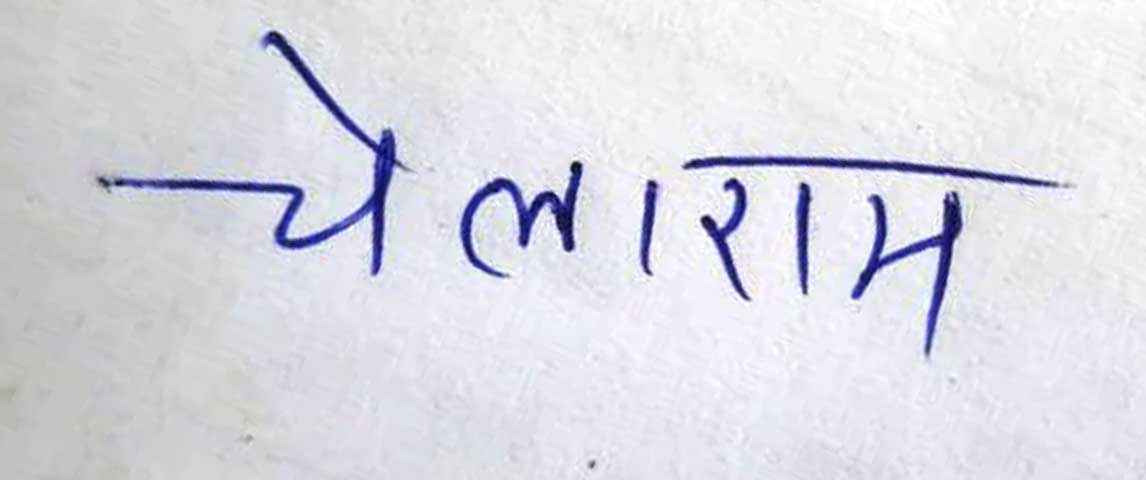 चेलाराम